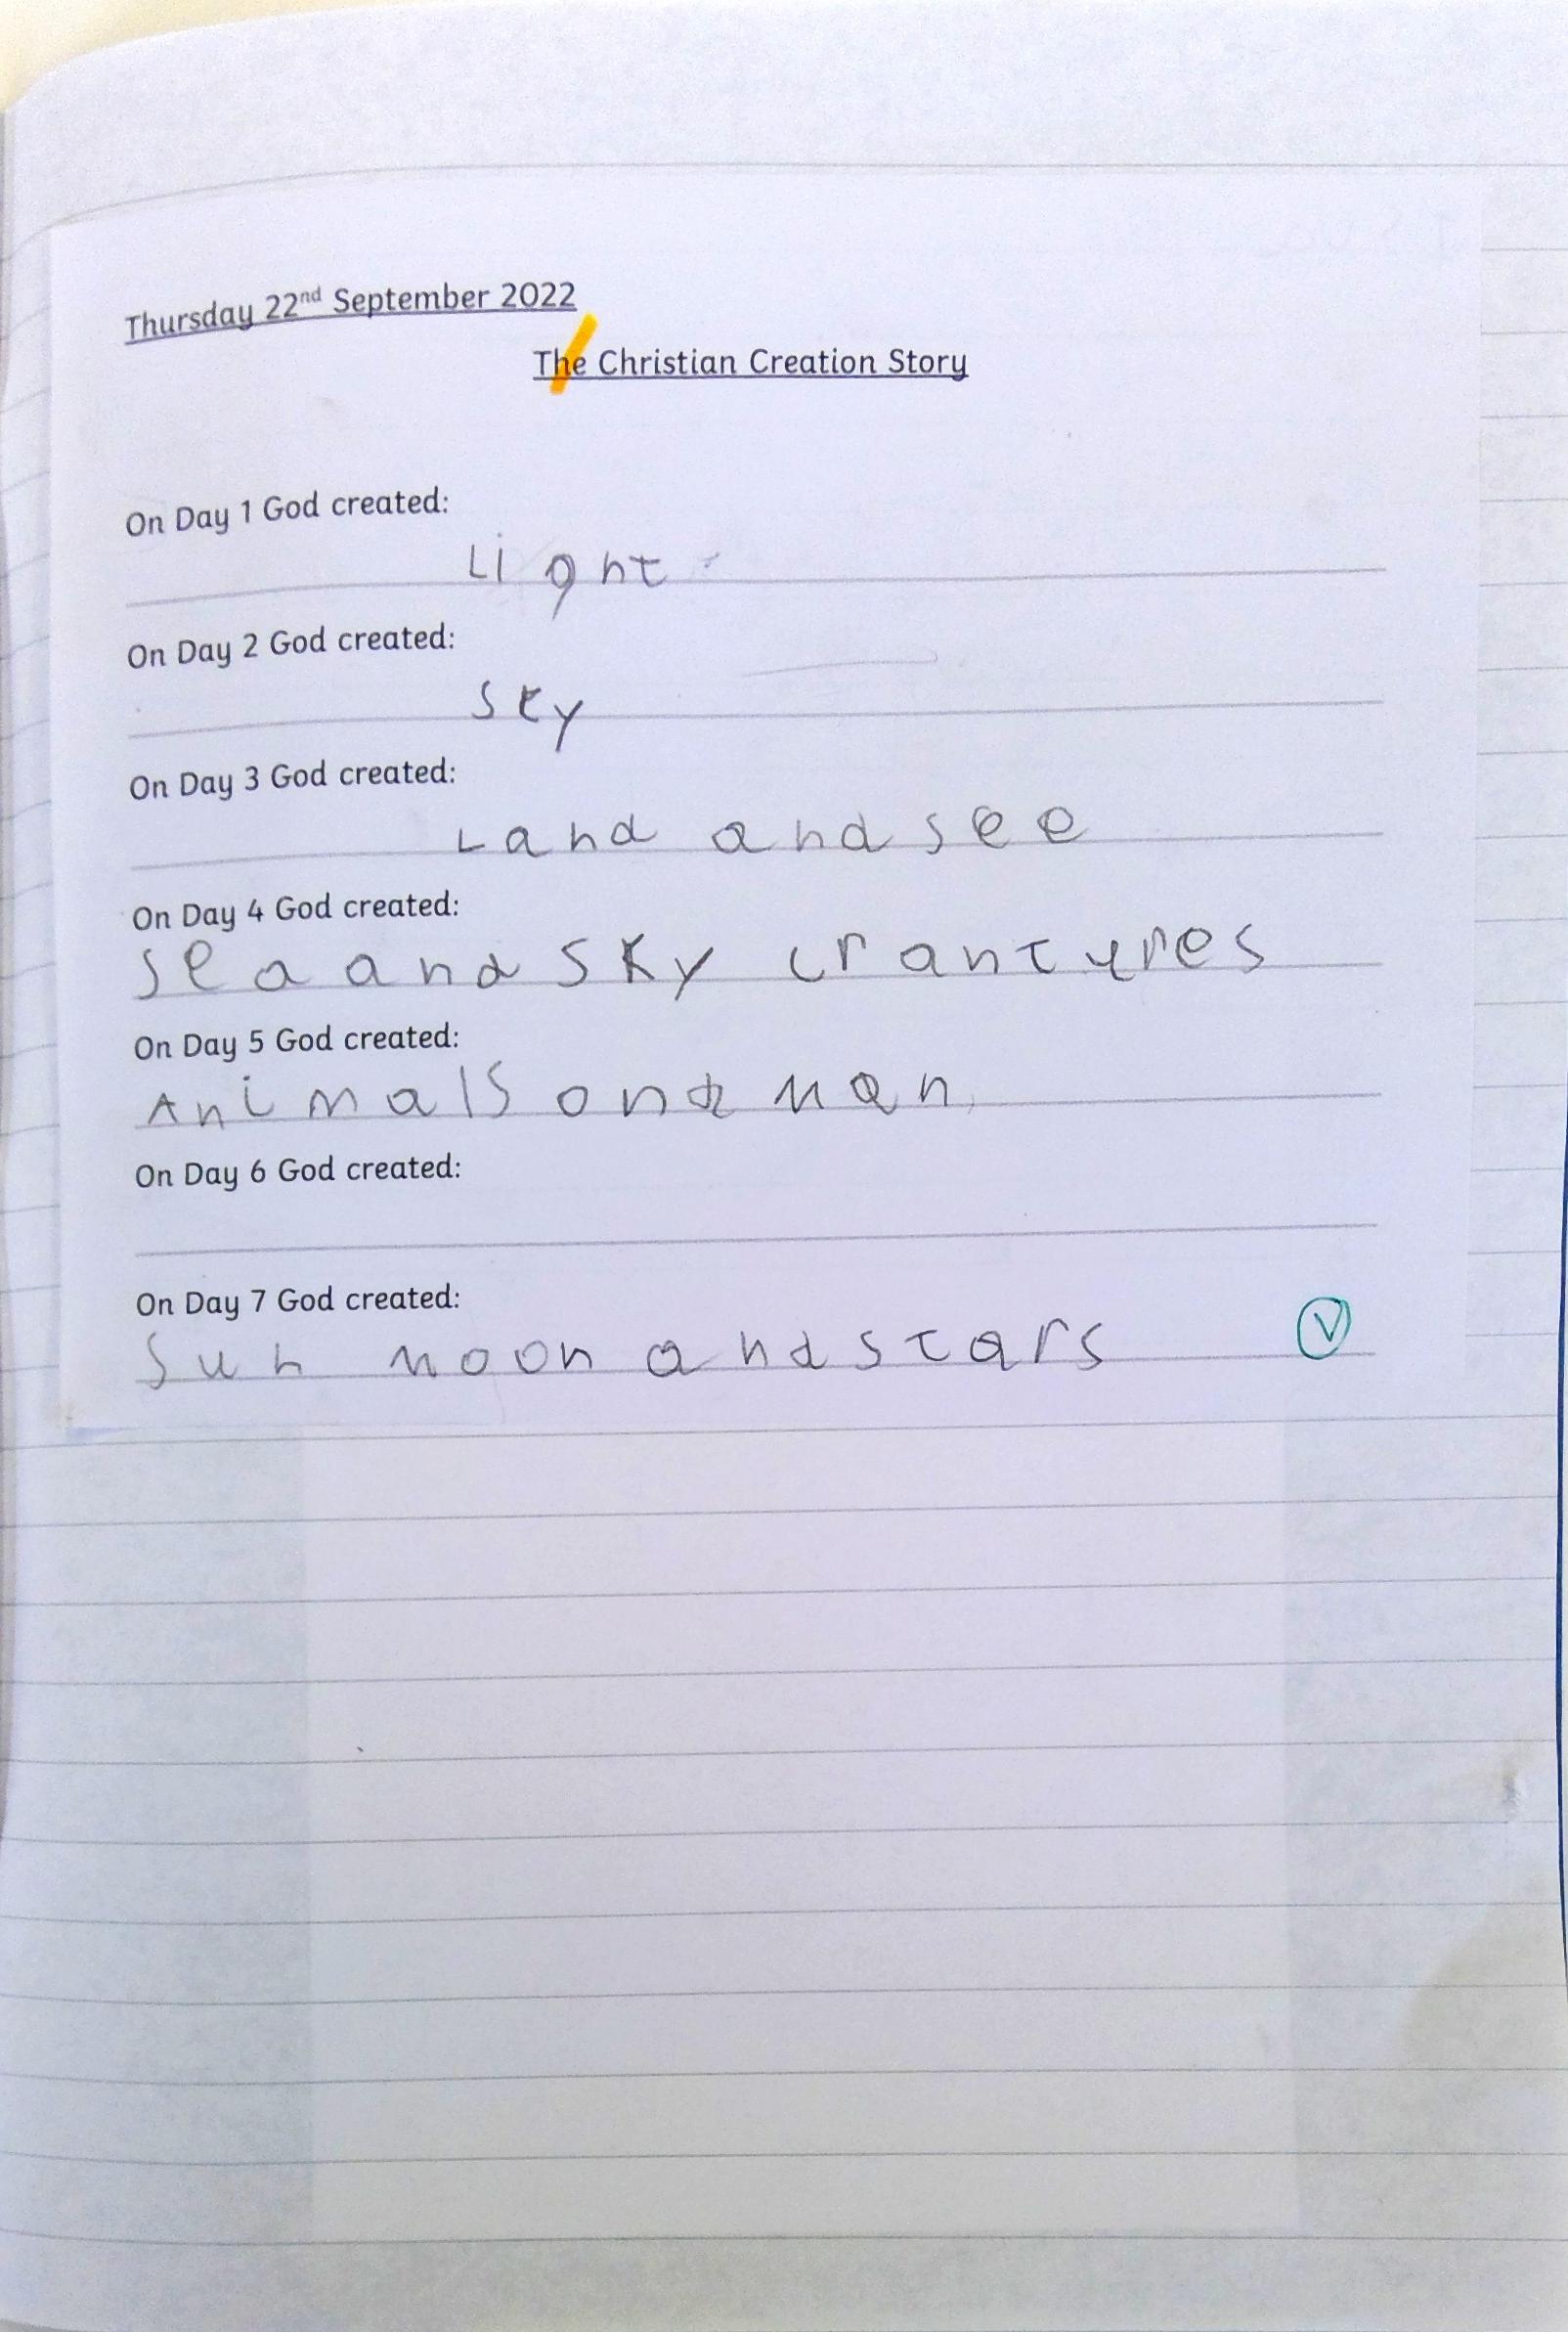 Thursday 22nd September 2022
The Christian Creation Story
On Day 1 God created:
Light
On Day 2 God created:
Sky
On Day 3 God created:
Land and see
On Day 4 God created:
Sea and sky crantures
On Day 5 God created:
Animals and man
On Day 6 God created:
On Day 7 God created:
Sun moon and stars
V